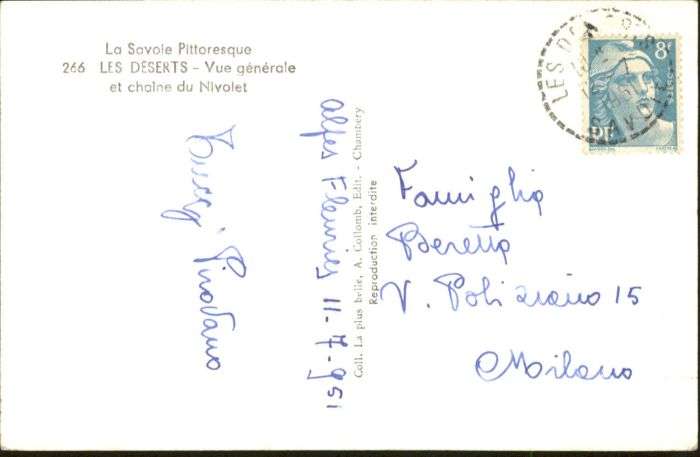 La Savoie Pittoresque
266 LES DESERTS - Vue générale
et chaîne du Nivolet
Pirovano
Alpes Fleuries 11-7-951
Coll. La plus belle, A. Collomb, Edit. - Chambery
Reproduction interdite
Famiglia
Beretta
V. Poliziano 15
Milano
LES DES
SAVOIE
8F
RF